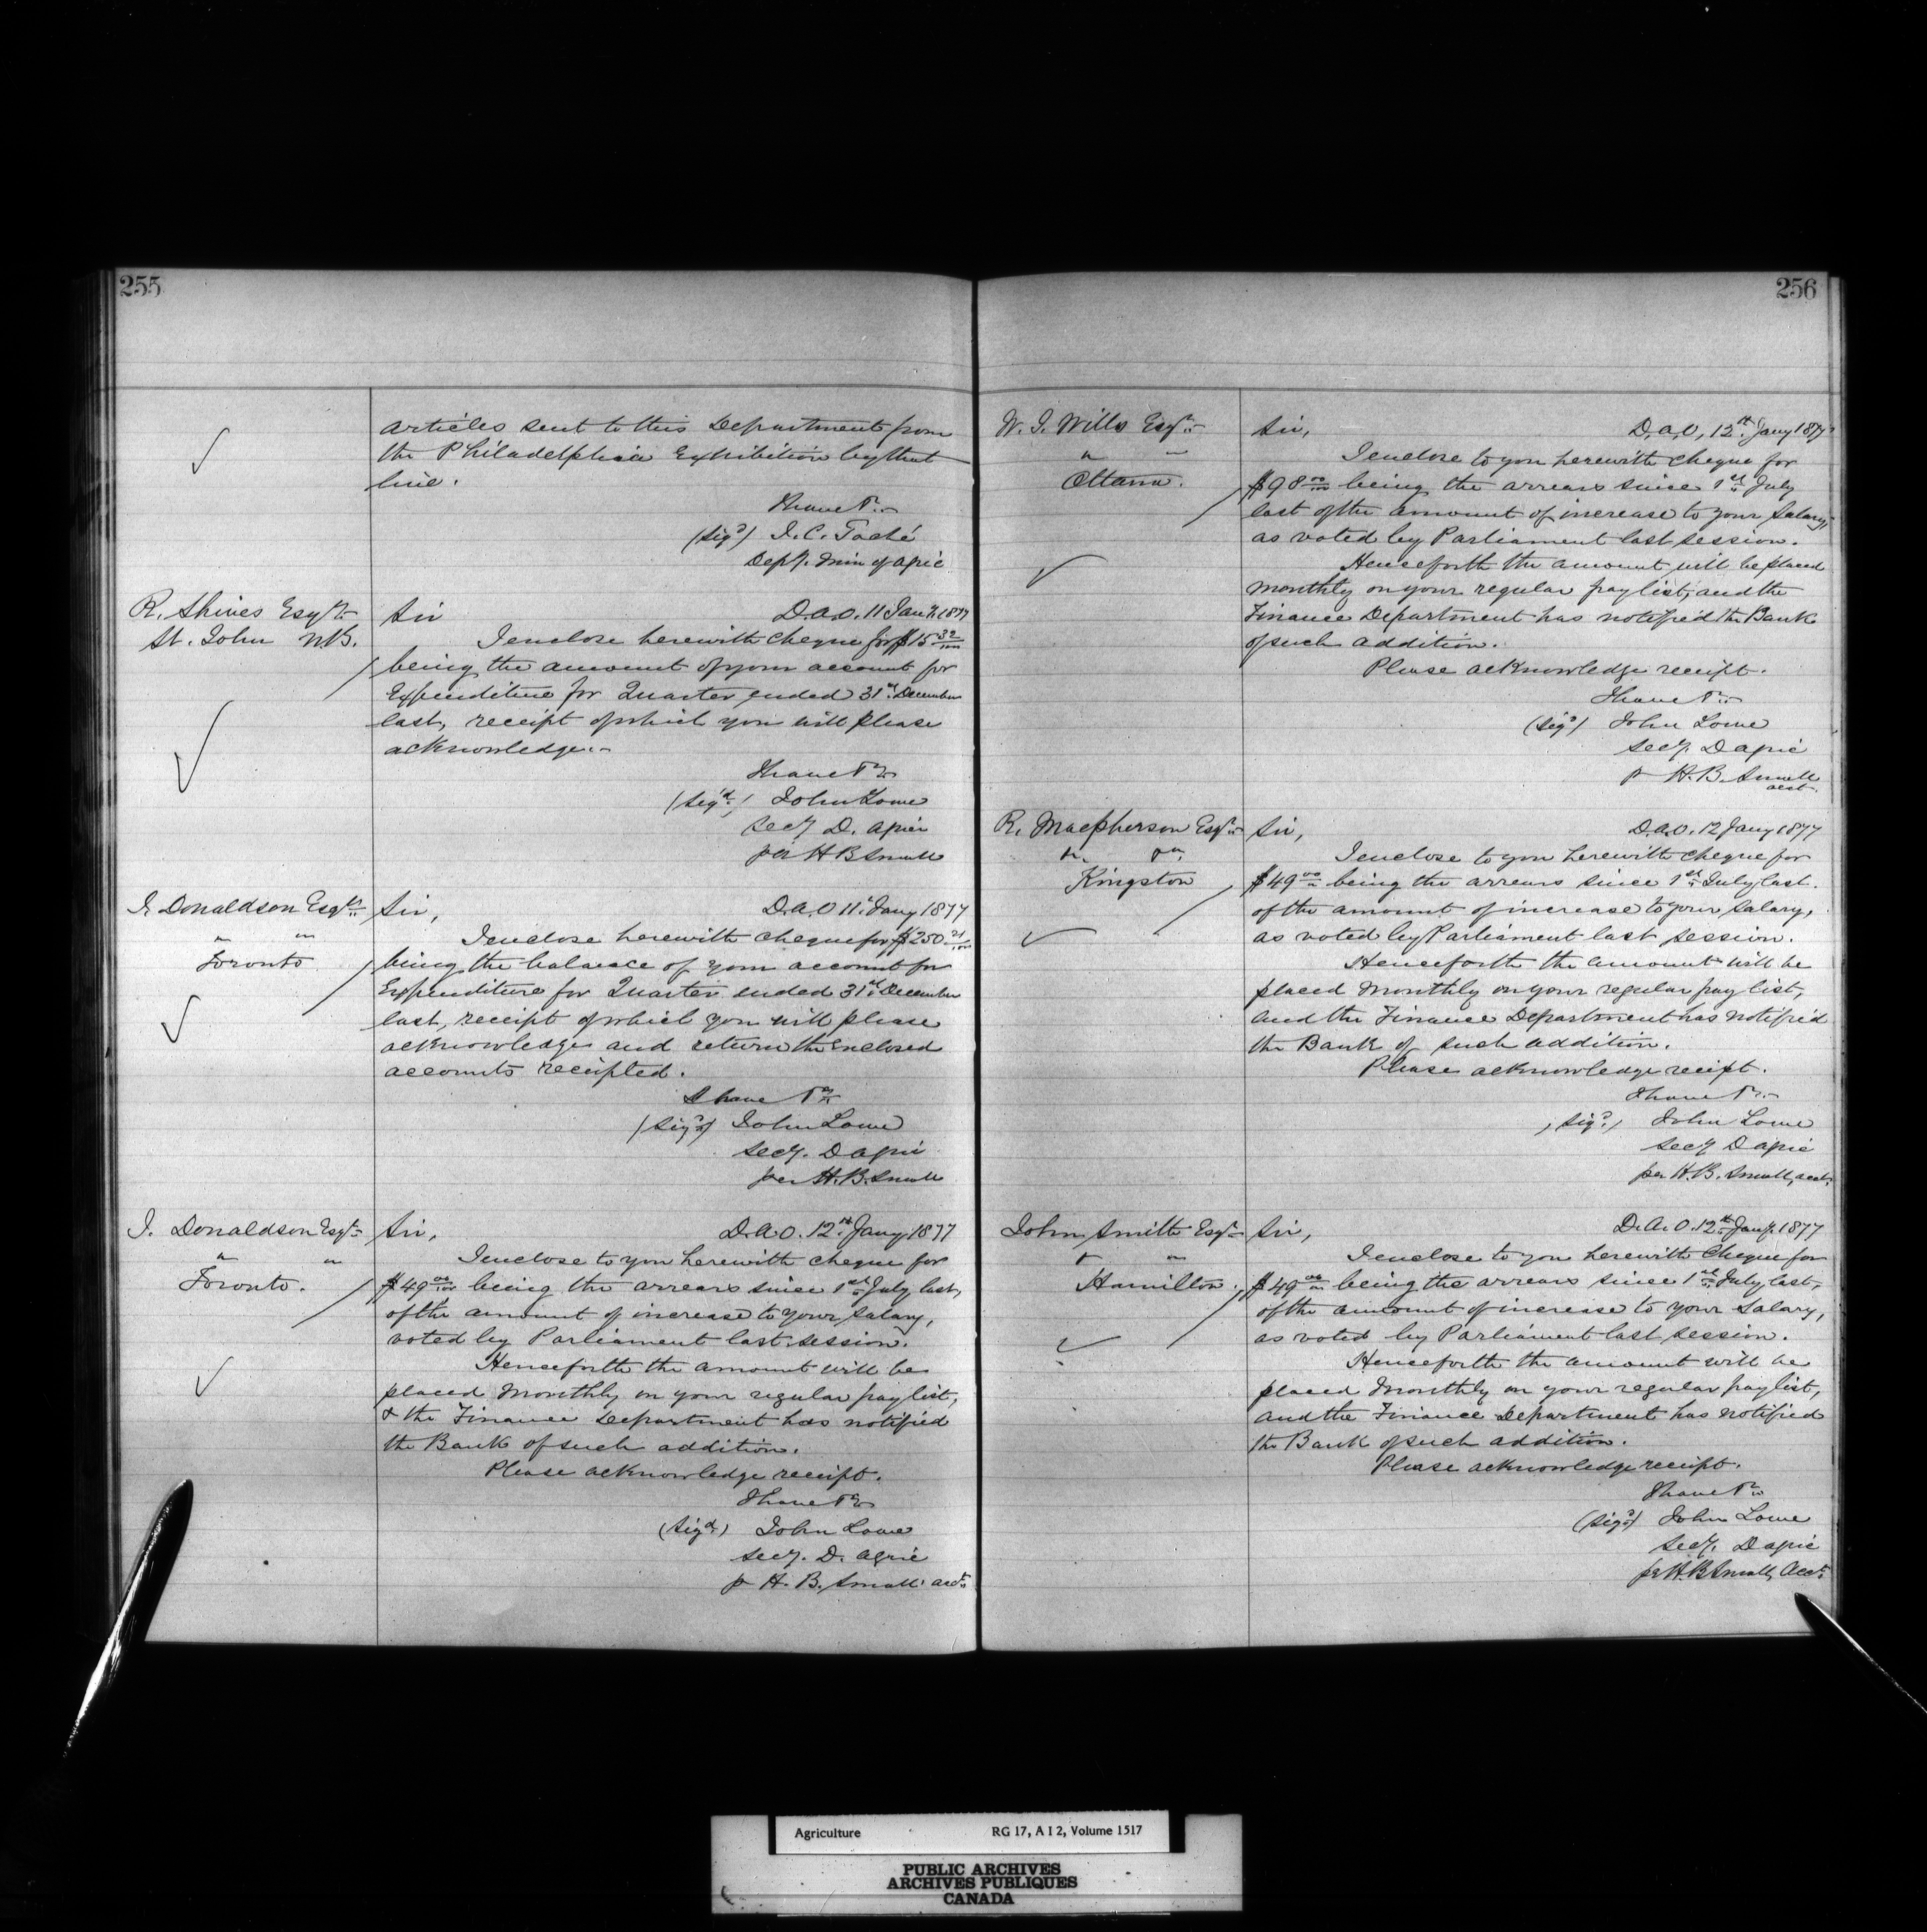 255
articles sent to this Department from
the Philadelphia Exhibition by that
line.
I have &c
(Sigd) J. C. Taché
Depy. Min of Agric
R. Shives Esqre
St. John N.B.
Sir
D.A.O. 11 Jany. 1877
I enclose herewith cheque for $15 32/100
being the amount of your account for
Expenditure for Quarter ended 31st December
last, receipt of which you will please
acknowledge.
I have &c
(Sigd.) John Lowe
Secy D. Agric
per H B Small
J. Donaldson Esqre
" "
Toronto
Sir,
D.A.O 11 Jany 1877
I enclose herewith cheque for $250 21/100
being the balance of your account for
Expenditure for Quarter ended 31st December
last, receipt of which you will please
acknowledge and return the enclosed
accounts receipted.
I have &c
(Sigd) John Lowe
Secy. D Agric
per H.B. Small
J. Donaldson Esqr
" "
Toronto.
Sir,
D.A.O. 12th Jany 1877
I enclose to you herewith cheque for
$49 00/100 being the arrears since 1st July last,
of the amount of increase to your salary,
voted by Parliament last session.
Henceforth the amount will be
placed monthly on your regular pay list,
& the Finance Department has notified
the Bank of such addition.
Please acknowledge receipt.
I have &c
(Sigd) John Lowe
Secy. D. Agric
p H. B. Small acct
256
W. J. Wills Esqr
" "
Ottawa.
Sir,
D.A.O, 12th Jany 1877
I enclose to you herewith cheque for
$98 00/100 being the arrears since 1st July
last of the amount of increase to your salary,
as voted by Parliament last session.
Henceforth the amount will be placed
monthly on your regular pay list, and the
Finance Department has notified the Bank
of such addition.
Please acknowledge receipt.
I have &c
(Sigd) John Lowe
Secy. D Agric
p H. B. Small
acct.
R. Macpherson Esqr
Kingston
Sir,
D.A.O. 12 Jany 1877
I enclose to you herewith cheque for
$49 00 being the arrears since 1st July last.
of the amount of increase to your salary,
as voted by Parliament last session.
Henceforth the amount will be
placed monthly on your regular pay list,
and the Finance Department has notified
the Bank of such addition.
Please acknowledge receipt.
I have &c
(Sigd) John Lowe
Secy D Agric
per H.B. Small, acct.
John Smith Esqr
" "
Hamilton.
Sir,
D.A.O. 12th Jany. 1877
I enclose to you herewith cheque for
$49 00 being the arrears since 1st July last,
of the amount of increase to your salary,
as voted by Parliament last session.
Henceforth the amount will be
placed monthly on your regular pay list,
and the Finance Department has notified
the Bank of such addition.
Please acknowledge receipt.
I have &c
(Sigd) John Lowe
Secy. D Agric
per H.B Small, Acct
Agriculture RG 17, A I 2, Volume 1517
PUBLIC ARCHIVES
ARCHIVES PUBLIQUES
CANADA